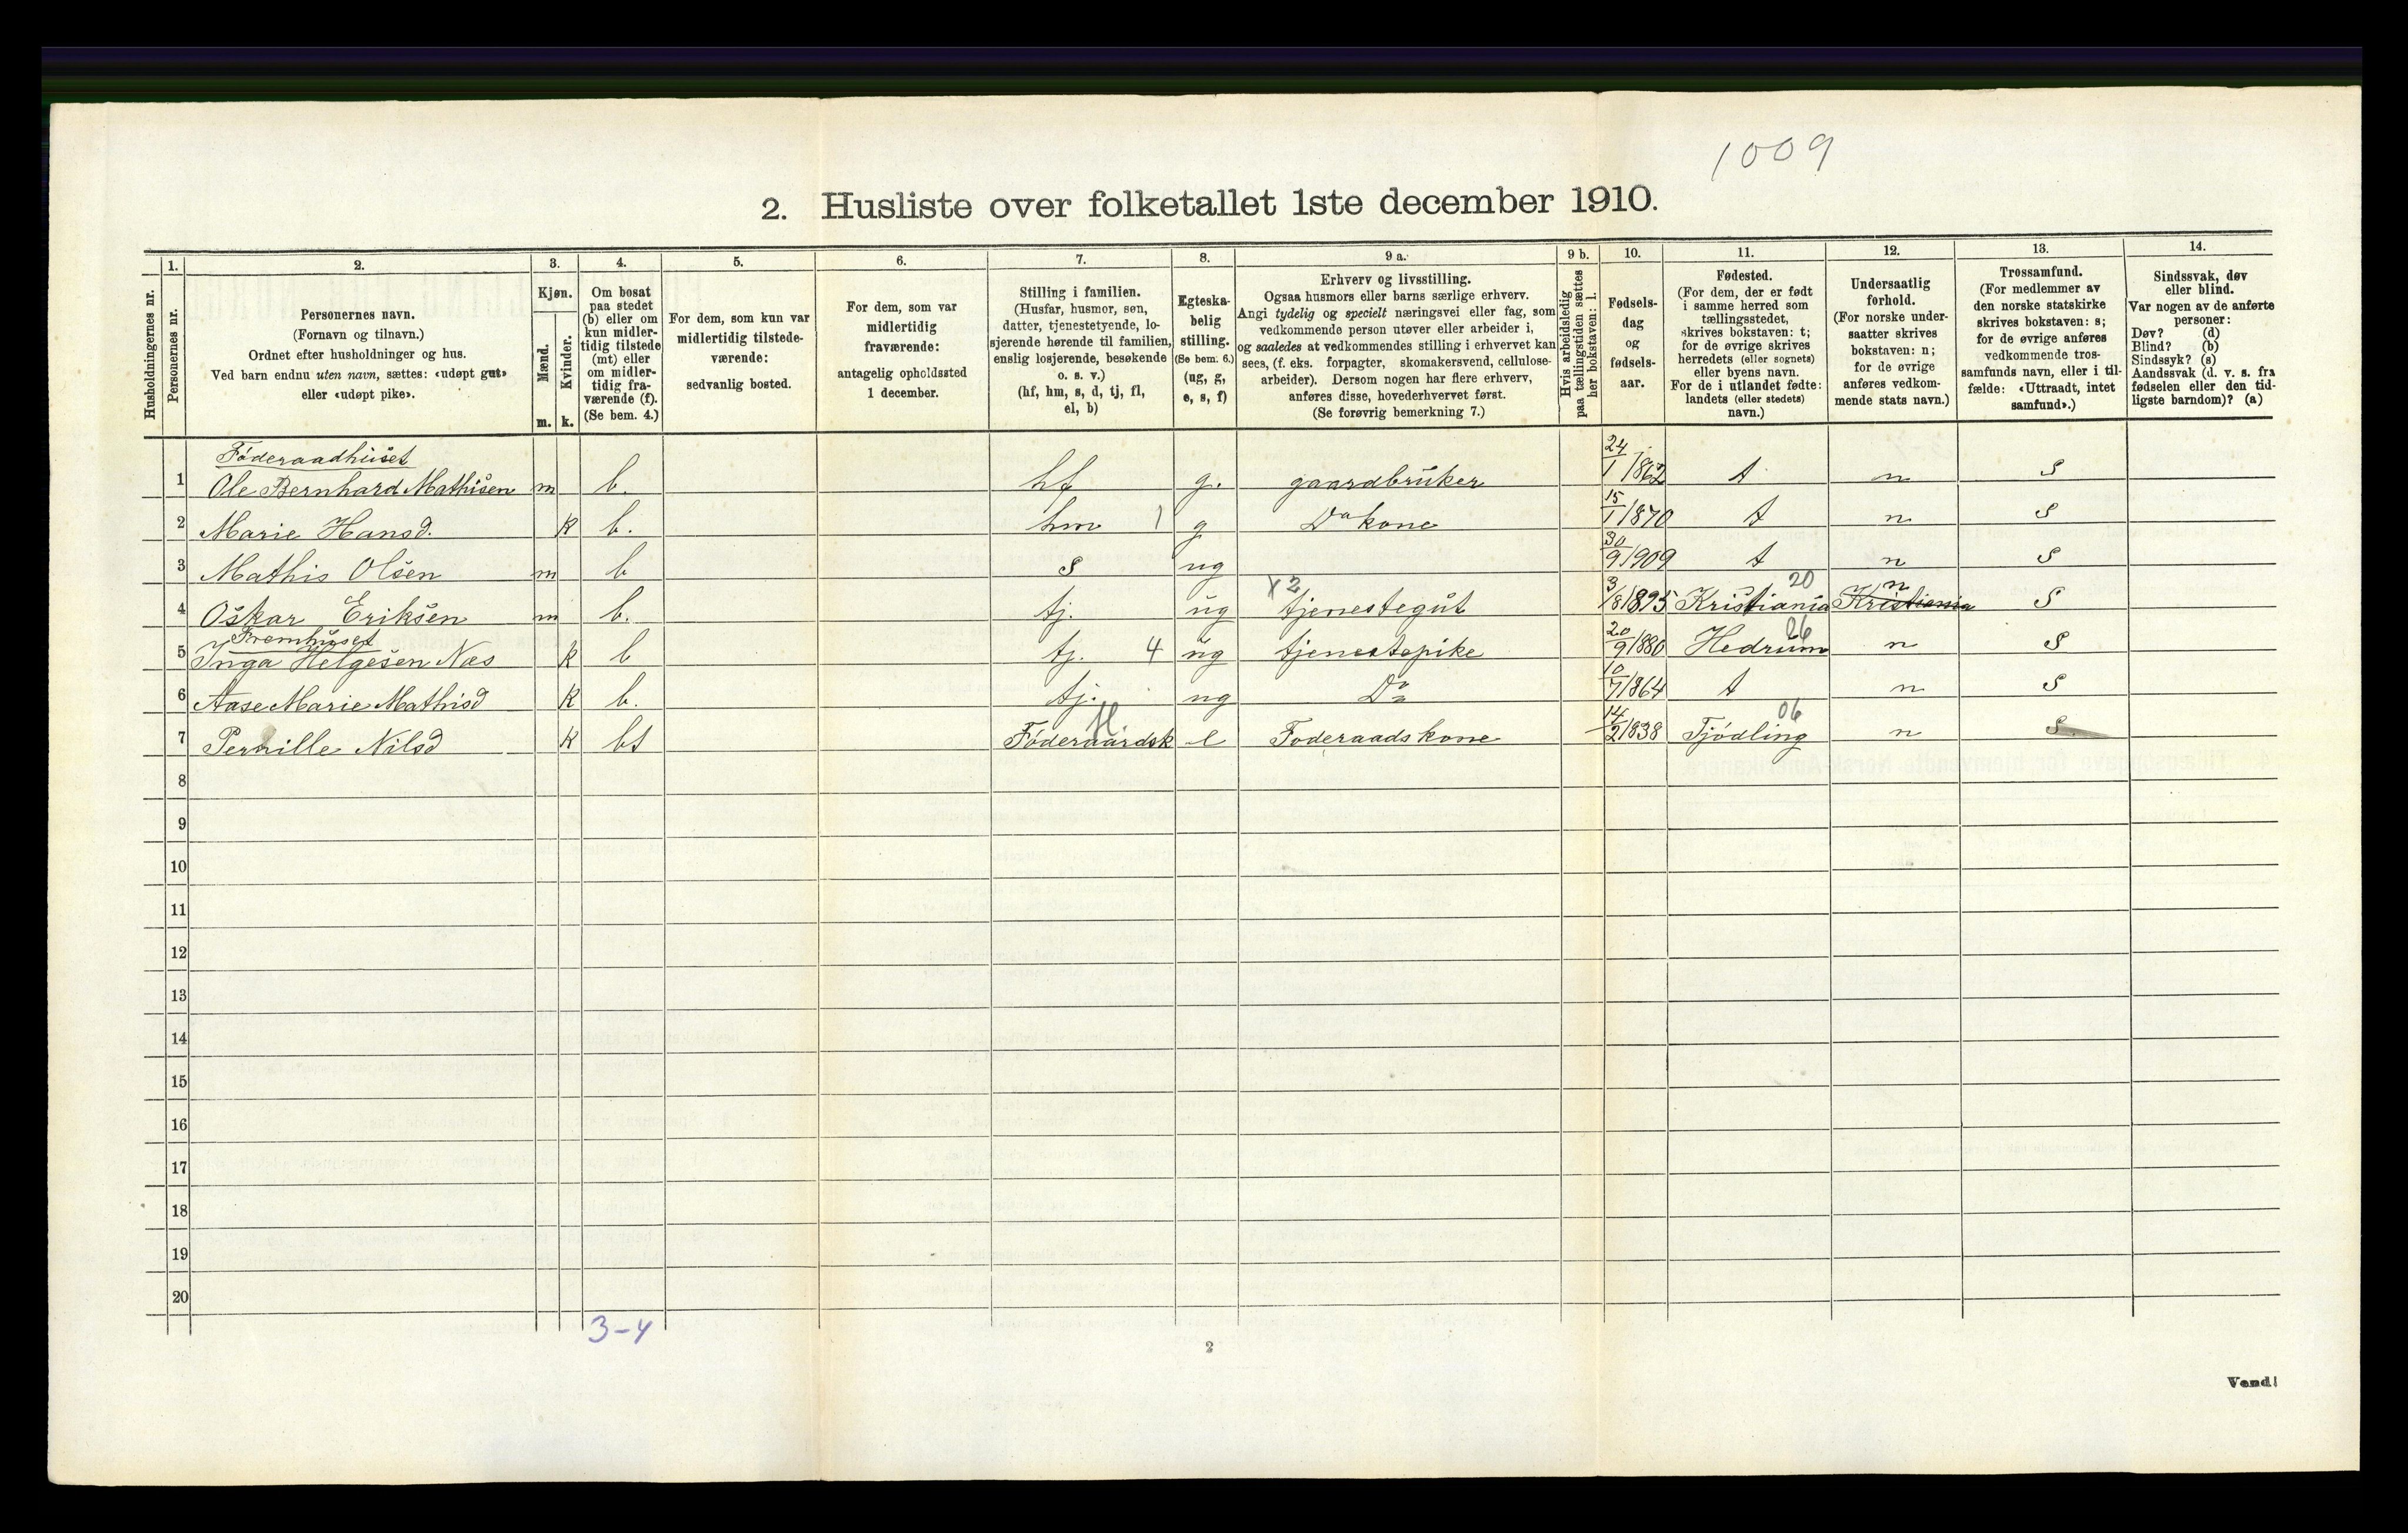 1009
2. Husliste over folketallet 1ste december 1910.
Husholdningernes nr.
1. Personernes nr.
2. Personernes navn.
(Fornavn og tilnavn.)
Ordnet efter husholdninger og hus.
Ved barn endnu uten navn, sættes: «udøpt gut»
eller «udøpt pike».
3. Kjøn.
Mænd. m.
Kvinder. k.
4. Om bosat
paa stedet
(b) eller om
kun midler-
tidig tilstede
(mt) eller
om midler-
tidig fra-
værende (f).
(Se bem. 4.)
5. For dem, som kun var
midlertidig tilstede-
værende:
sedvanlig bosted.
6. For dem, som var
midlertidig
fraværende:
antagelig opholdssted
1 december.
7. Stilling i familien.
(Husfar, husmor, søn,
datter, tjenestetyende, lo-
sjerende hørende til familien,
enslig losjerende, besøkende
o. s. v.)
(hf, hm, s, d, tj, fl,
el, b)
8. Egteska-
belig
stilling.
(Se bem. 6.)
(ug, g,
e, s, f)
9 a. Erhverv og livsstilling.
Ogsaa husmors eller barns særlige erhverv.
Angi tydelig og specielt næringsvei eller fag, som
vedkommende person utøver eller arbeider i,
og saaledes at vedkommendes stilling i erhvervet kan
sees, (f. eks. forpagter, skomakersvend, cellulose-
arbeider). Dersom nogen har flere erhverv,
anføres disse, hovederhvervet først.
(Se forøvrig bemerkning 7.)
9 b. Hvis arbeidsledig
paa tællingstiden sættes
her bokstaven: l.
10. Fødsels-
dag
og
fødsels-
aar.
11. Fødested.
(For dem, der er født
i samme herred som
tællingsstedet,
skrives bokstaven: t;
for de øvrige skrives
herredets (eller sognets)
eller byens navn.
For de i utlandet fødte:
landets (eller stedets)
navn.)
12. Undersaatlig
forhold.
(For norske under-
saatter skrives
bokstaven: n;
for de øvrige
anføres vedkom-
mende stats navn.)
13. Trossamfund.
(For medlemmer av
den norske statskirke
skrives bokstaven: s;
for de øvrige anføres
vedkommende tros-
samfunds navn, eller i til-
fælde: «Uttraadt, intet
samfund».)
14. Sindssvak, døv
eller blind.
Var nogen av de anførte
personer:
Døv? (d)
Blind? (b)
Sindssyk? (s)
Aandssvak (d. v. s. fra
fødselen eller den tid-
ligste barndom)? (a)
Föderaadhuset
1 Ole Bernhard Mathisen m b. hf g. gaardbruker 24/1 1862 t n S
2 Marie Hansd. k b. hm 1 g Da kone 15/1 1870 t n S
3 Mathis Olsen m b s ug 30/9 1909 t n S
4 Oskar Eriksen m b. tj. ug x2 tjenestegut 3/8 1895 Kristiania 20 Kristiania n S
Fremhuset
5 Inga Helgesen Næs k b tj. 4 ug tjenestepike 20/9 1880 Hedrum 26 n S
6 Aase Marie Mathisd k b. tj. ug Do 10/7 1864 t n S
7 Pernille Nilsd k bt Föderaardsk H e Foderaadskone 14/2 1838 Tjödling 06 n S.
8
9
10
11
12
13
14
15
16
17
18
19
20
3-4
2
Vend!